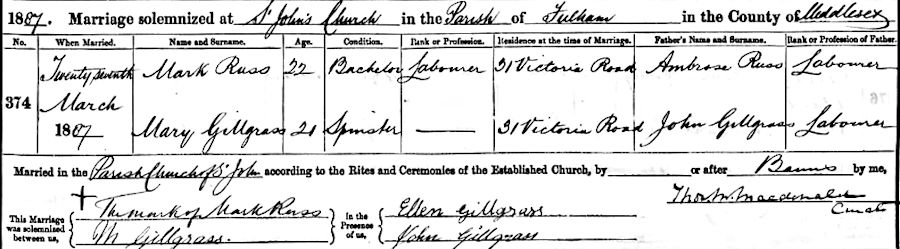 1887. Marriage solemnized at St John's Church in the Parish of Fulham in the County of Middlesex
No. When Married. Name and Surname. Age. Condition. Rank or Profession. Residence at the time of Marriage. Father's Name and Surname. Rank or Profession of Father.
374 Twenty seventh March 1887 Mark Russ 22 Bachelor Labourer 31 Victoria Road Ambrose Russ Labourer
Mary Gillgrass 21 Spinster 31 Victoria Road John Gillgrass Labourer
Married in the Parish Church of St John according to the Rites and Ceremonies of the Established Church, by or after Banns by me,
This Marriage was solemnized between us, The mark of Mark Russ In the Presence of us, Ellen Gillgrass Thos. W. Macdonald
M Gillgrass. John Gillgrass Curate